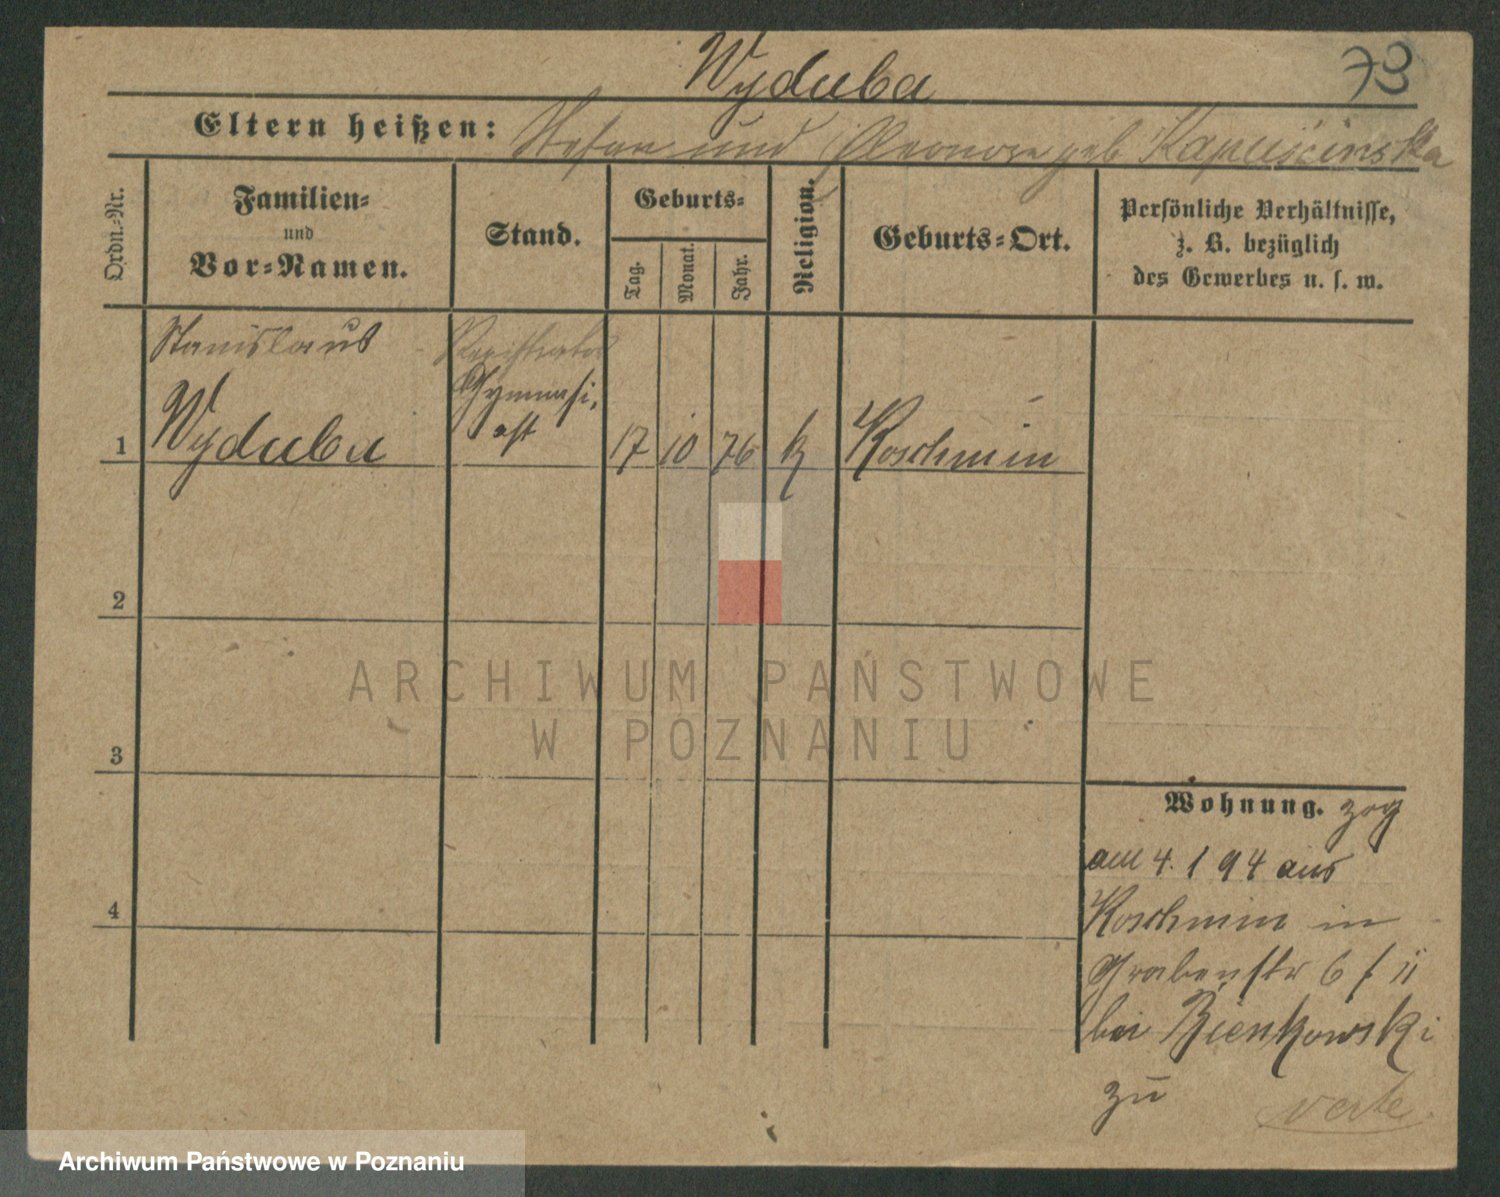 Wyduba
73
Eltern heißen: Stefan und Eleonore geb Kapuścinska
Ordn.-Nr.
Familien-
und
Vor-Namen.
Stand.
Geburts-
Tag.
Monat.
Jahr.
Religion.
Geburts-Ort.
Persönliche Verhältnisse,
z. B. bezüglich
des Gewerbes u. s. w.
Stanislaus
Registrator
Gymnasi-
ast
1 Wyduba 17 10 76 k Koschmin
2
3
4
Wohnung. zog
am 4. 1 94 aus
Koschmin in
Grabenstr 6 f II
bei Bienkowski
zu
verte
ARCHIWUM PAŃSTWOWE
W POZNANIU
Archiwum Państwowe w Poznaniu